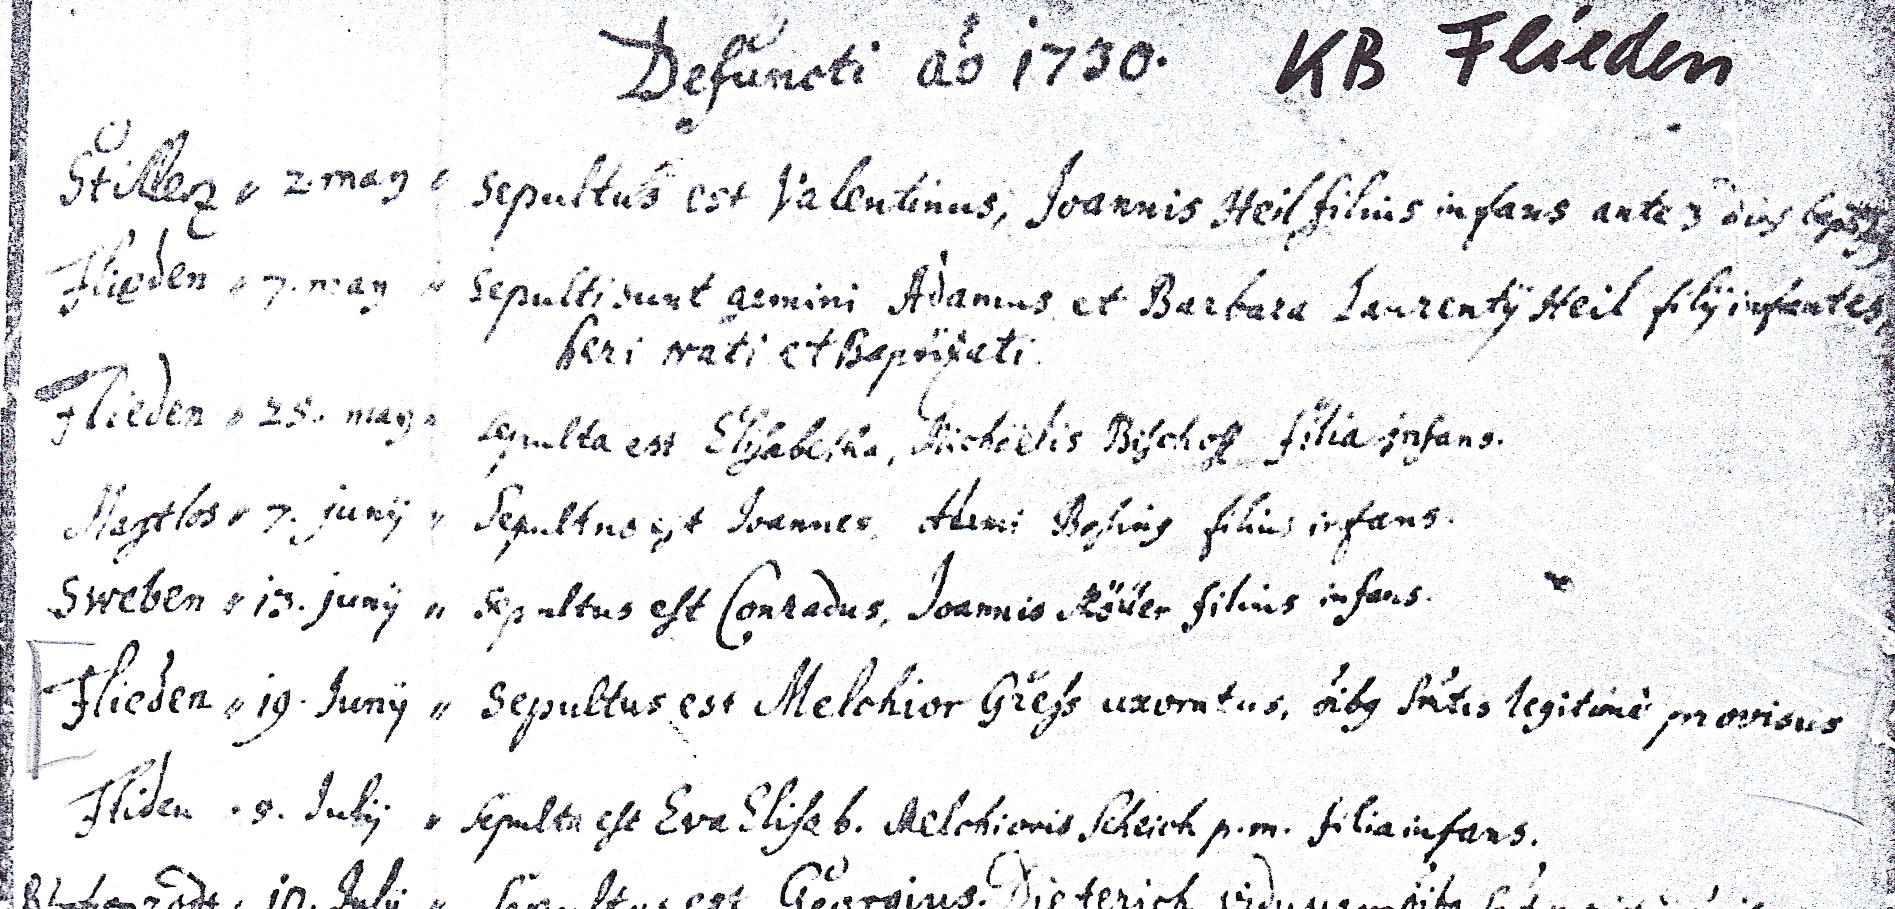 Defuncti aõ 1730. KB Flieden
Stillerz " 2. maÿ " sepultus est Valentinus, Joannis Heil filius infans ante 3 dies
Flieden " 7. maÿ " sepulti sunt gemini Adamus et Barbara Laurentÿ Heil filÿ infantes,
heri nati et Baptizati.
Flieden " 25. maÿ " sepulta est Elisabetha, Michaëlis Bischoff filia infans.
Magtlos " 7. junÿ " Sepultus est Joannes, filius infans.
Sweben " 13. junÿ " sepultus est Conradus, Joannis filius infans.
Flieden " 19. Junÿ " sepultus est Melchior Greß uxoratus, oïbg Sm̃tis legitimè provisus
Fliden " 8. Julÿ " sepulta est Eva Elisab. Melchioris Scheich p.m. filia infans.
10. Julÿ " Sepultus est Georgius Dieterich